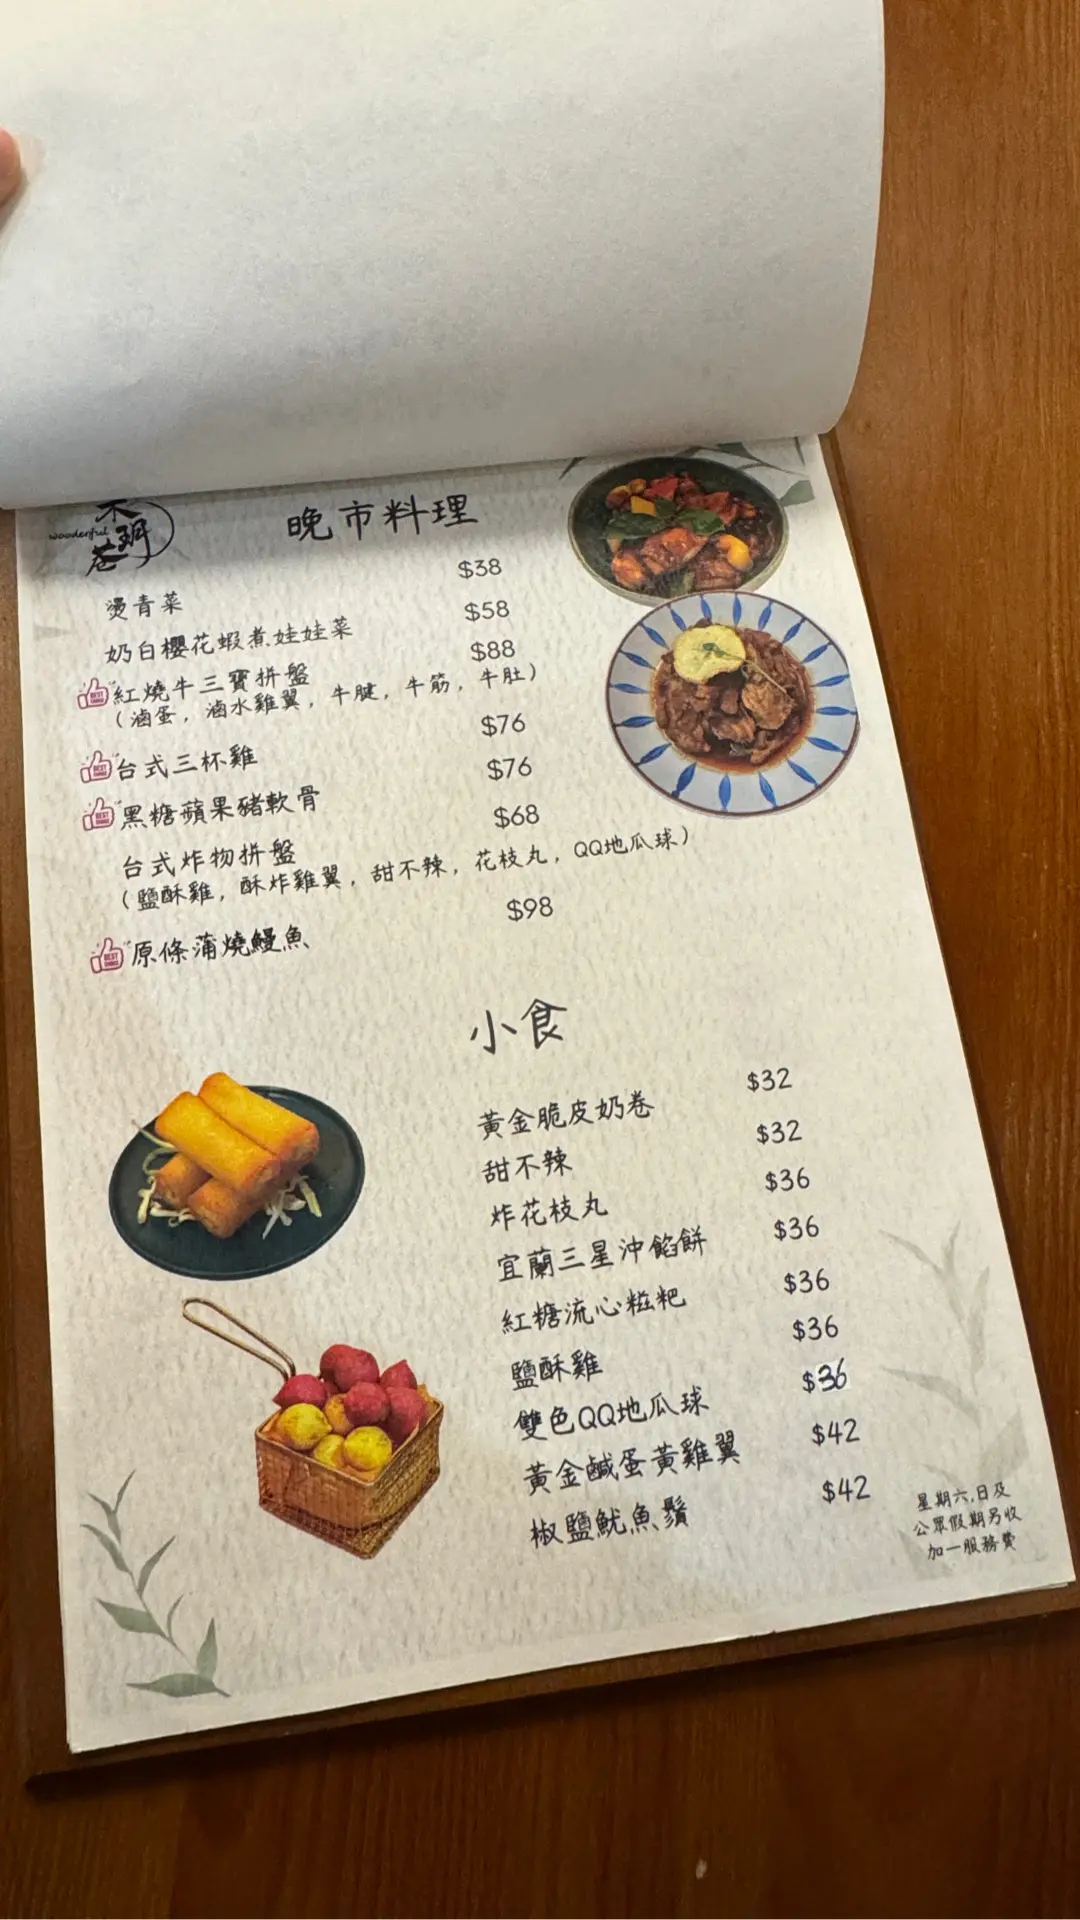 木
wooderful
玥
巷
晚市料理
燙青菜 $38
奶白櫻花蝦煮娃娃菜 $58
BEST CHOICE 紅燒牛三寶拼盤 $88
(滷蛋, 滷水雞翼, 牛腱, 牛筋, 牛肚)
BEST CHOICE 台式三杯雞 $76
BEST CHOICE 黑糖蘋果豬軟骨 $76
台式炸物拼盤 $68
(鹽酥雞, 酥炸雞翼, 甜不辣, 花枝丸, QQ地瓜球)
BEST CHOICE 原條蒲燒鰻魚 $98
小食
黃金脆皮奶卷 $32
甜不辣 $32
炸花枝丸 $36
宜蘭三星沖餡餅 $36
紅糖流心糍粑 $36
鹽酥雞 $36
雙色QQ地瓜球 $36
黃金鹹蛋黃雞翼 $42
椒鹽魷魚鬚 $42
星期六,日及
公眾假期另收
加一服務費